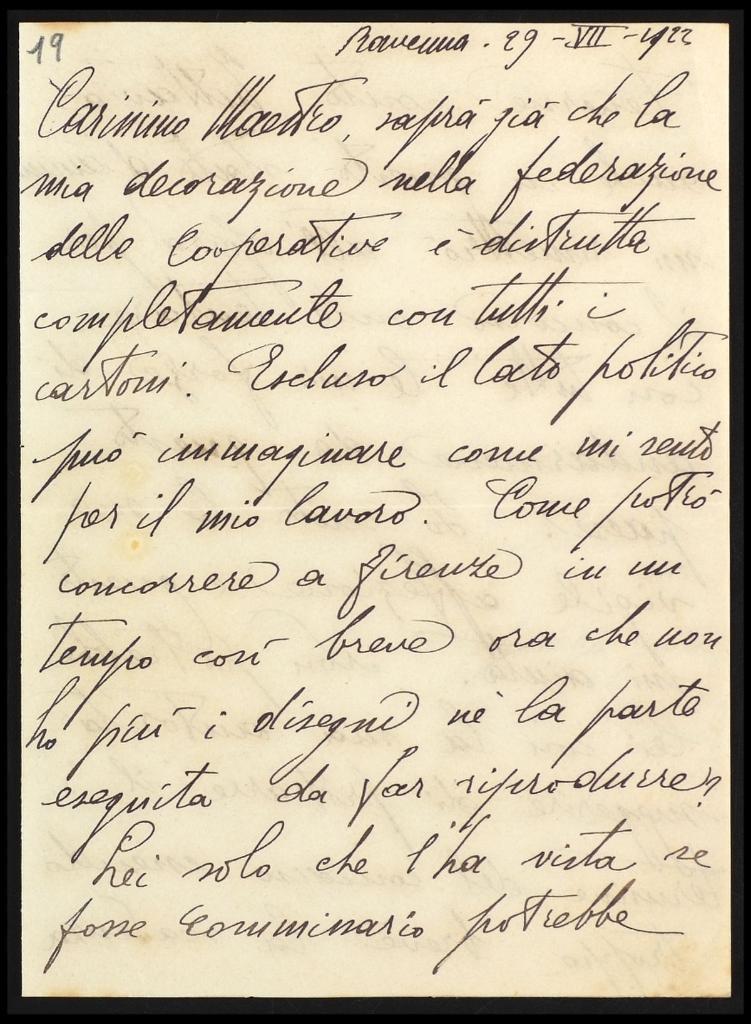 19
Ravenna. 29 - VII - 1922
Carissimo Maestro, saprá giá che la
mia decorazione nella federazione
delle Cooperative é distrutta
completamente con tutti i
cartoni. Escluso il lato politico
puó immaginare come mi sento
per il mio lavoro. Come potró
concorrere a Firenze in un
tempo cosí breve ora che non
ho piú i disegni né la parte
eseguita da far riprodurre?
Lei solo che l'ha vista se
fosse Commissario potrebbe